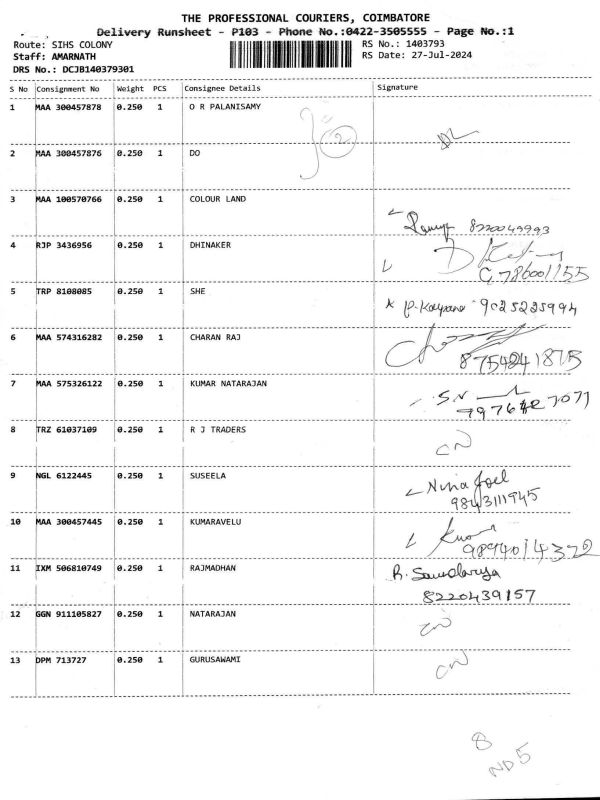 THE PROFESSIONAL COURIERS, COIMBATORE
Delivery Runsheet - P103 - Phone No.:0422-3505555 - Page No.:1
Route: SIHS COLONY RS No.: 1403793
Staff: AMARNATH RS Date: 27-Jul-2024
DRS No.: DCJB140379301
S No Consignment No Weight PCS Consignee Details Signature
1 MAA 300457878 0.250 1 O R PALANISAMY
2
2 MAA 300457876 0.250 1 DO
3 MAA 100570766 0.250 1 COLOUR LAND
8220049993
4 RJP 3436956 0.250 1 DHINAKER
5 TRP 8108085 0.250 1 SHE
P. Kalpana 9025225994
6 MAA 574316282 0.250 1 CHARAN RAJ
8754241875
7 MAA 575326122 0.250 1 KUMAR NATARAJAN
S.N
8 TRZ 61037109 0.250 1 R J TRADERS
CN
9 NGL 6122445 0.250 1 SUSEELA
Nina Joel
9843111945
10 MAA 300457445 0.250 1 KUMARAVELU
9894014372
11 IXM 506810749 0.250 1 RAJMADHAN
R. Soundarya
8220439157
12 GGN 911105827 0.250 1 NATARAJAN
CN
13 DPM 713727 0.250 1 GURUSAWAMI
CN
8
ND 5